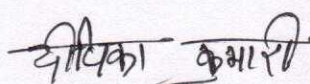 दीपिका कुमारी